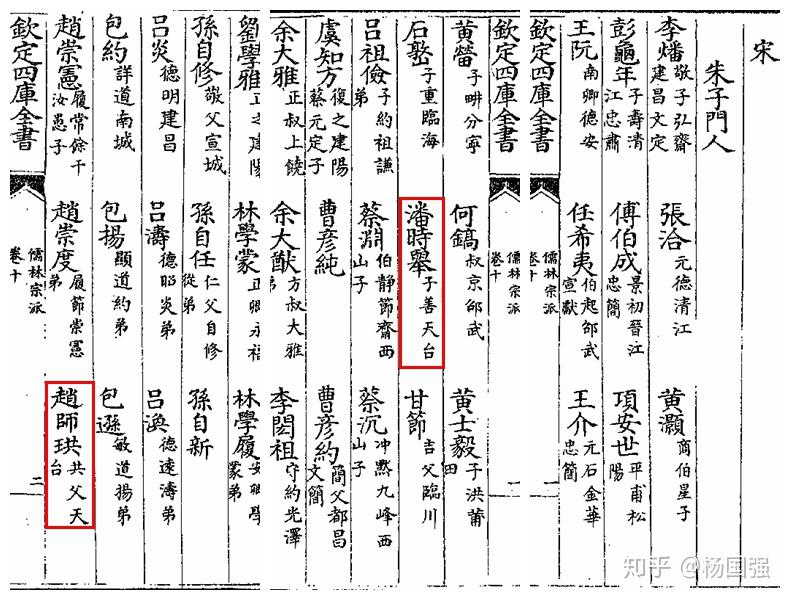 宋
朱子門人
李燔 敬子弘齋建昌文定 張洽 元德清江 黃灝 商伯星子
彭龜年 子壽清江忠肅 傅伯成 景初晉江忠簡 項安世 平甫松陽
王阮 南卿德安 任希夷 伯起邵武宣獻 王介 元石金華忠簡
欽定四庫全書 儒林宗派 卷十 一
欽定四庫全書 儒林宗派 卷十 一
黃 子畊分寧 何鎬 叔京邵武 黃士毅 子洪莆田
石 子重臨海 潘時舉 子善天台 甘節 吉父臨川
呂祖儉 子約祖謙弟 蔡淵 伯靜節齋西山子 蔡沉 冲黙九峰西山子
虞知方 復之建陽蔡元定子 曹彥純 曹彥約 簡父都昌文簡
余大雅 正叔上饒 余大猷 方叔大雅弟 李閎祖 守約光澤
劉學雅 正之建陽 林學蒙 正卿永福 林學履 安卿學蒙弟
孫自修 敬父宣城 孫自任 仁父自修從弟 孫自新
呂炎 德明建昌 呂濤 德昭炎弟 呂渙 德遠濤弟
包約 詳道南城 包揚 顯道約弟 包遜 敏道揚弟
趙崇憲 履常餘干汝愚子 趙崇度 履節崇憲弟 趙師珙 共父天台
欽定四庫全書 儒林宗派 卷十 二
知乎 @杨国强